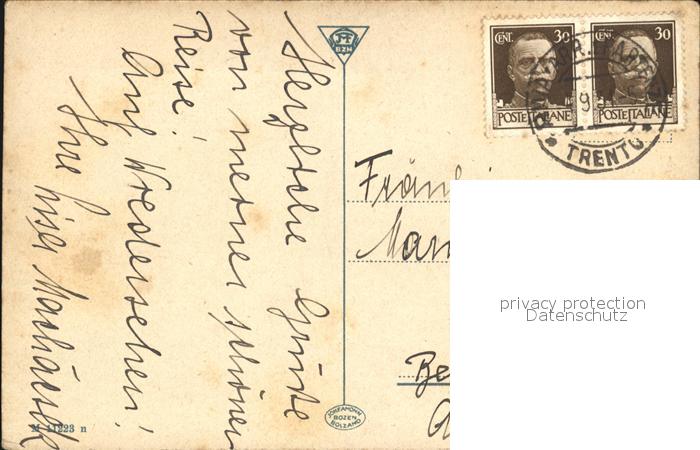 Herzliche Grüße
von meiner schönen
Reise!
Auf Wiedersehen!
Ihre Lisa
CENT. 30
POSTE ITALIANE
CENT. 30
POSTE ITALIANE
TRENTO
9
Fräul
Mar
Be
JF
BZN
JOH.F.AMONN
BOZEN
BOLZANO
M 11223 n
privacy protection
Datenschutz